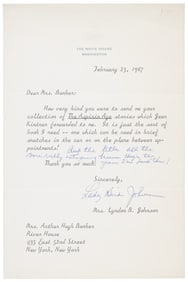 THE WHITE HOUSE
WASHINGTON
February 23, 1967
Dear Mrs. Bunker:
How very kind you were to send me your
collection of The Aspirin Age stories which Jean
Kintner forwarded to me. It is just the sort of
book I need -- one which can be read in brief
snatches in the car or on the phone between ap-
pointments! And the title
Thank you so much
Sincerely,
Lady Bird Johnson
Mrs. Lyndon B. Johnson
Mrs. Arthur Hugh Bunker
River House
435 East 52nd Street
New York, New York